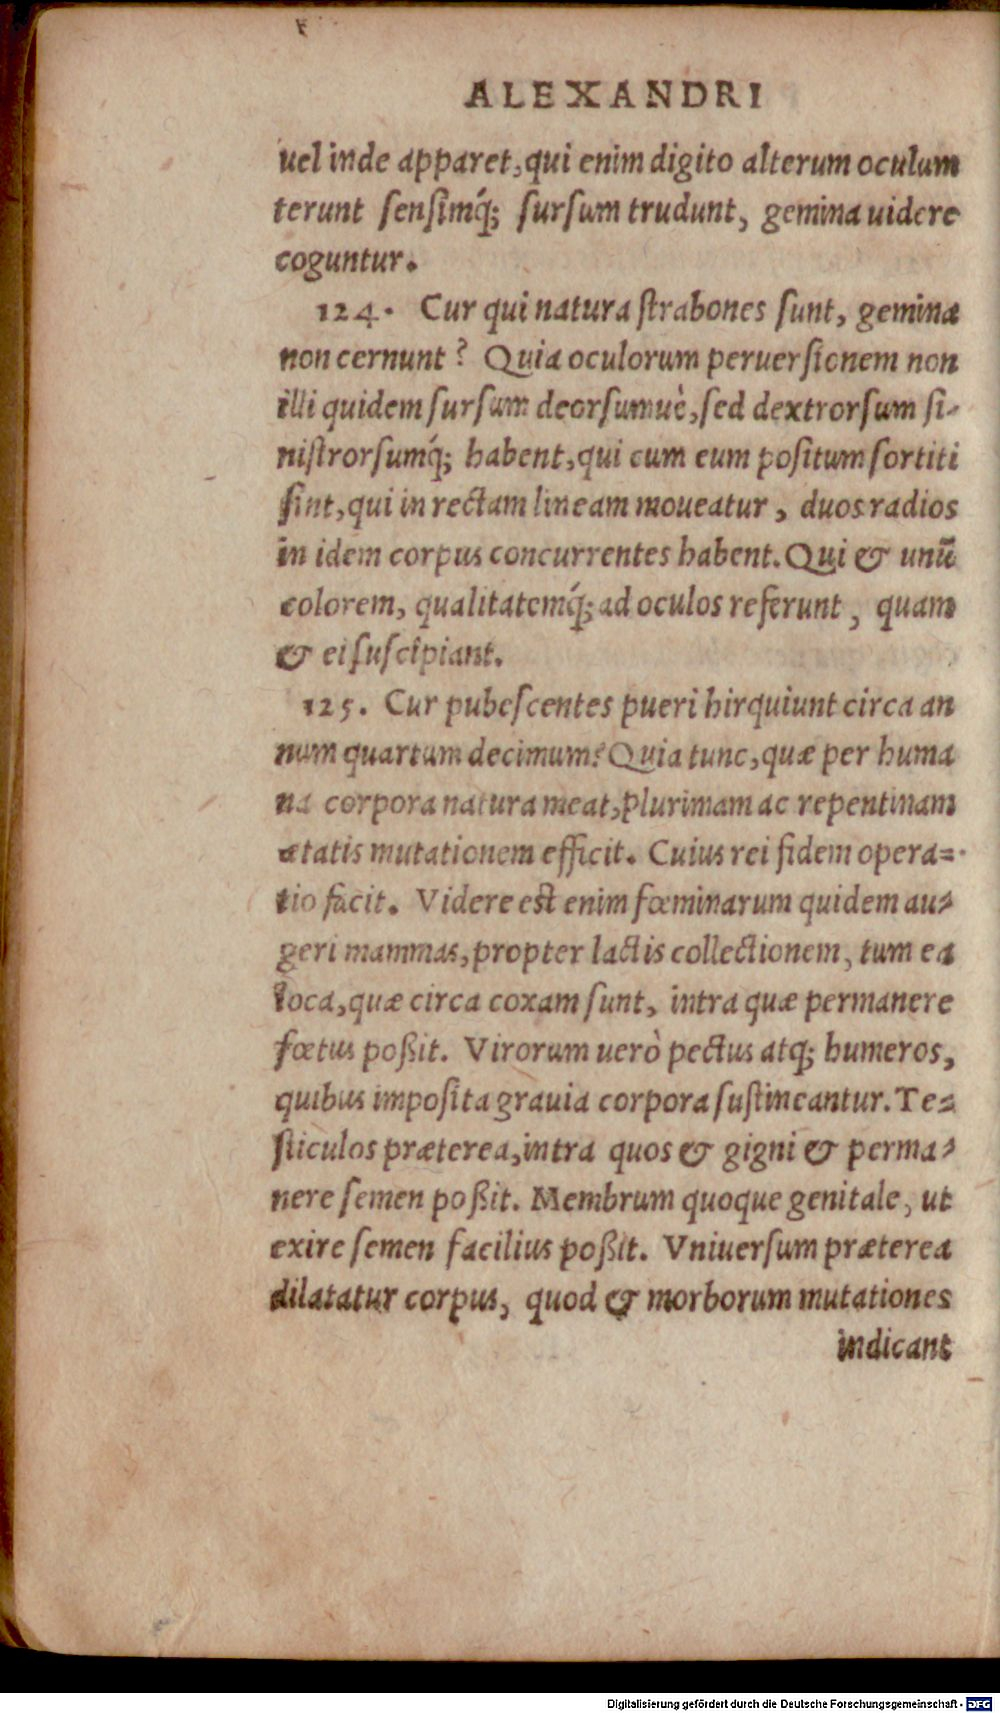 ALEXANDRI
uel inde apparet, qui enim digito alterum oculum
terunt sensimq́; sursum trudunt, gemina uidere
coguntur.
124. Cur qui natura strabones sunt, gemina
non cernunt? Quia oculorum peruersionem non
illi quidem sursum deorsumuè, sed dextrorsum si-
nistrorsumq́; habent, qui cum eum positum sortiti
sint, qui in rectam lineam moueatur, duos radios
in idem corpus concurrentes habent. Qui & unū
colorem, qualitatemq́; ad oculos referunt, quam
& ei suscipiant.
125. Cur pubescentes pueri hirquiunt circa an
num quartum decimum? Quia tunc, quæ per huma
na corpora natura meat, plurimam ac repentinam
ætatis mutationem efficit. Cuius rei fidem opera=
tio facit. Videre est enim fœminarum quidem au-
geri mammas, propter lactis collectionem, tum ea
loca, quæ circa coxam sunt, intra quæ permanere
fœtus poßit. Virorum uerò pectus atq; humeros,
quibus imposita grauia corpora sustineantur. Te=
sticulos præterea, intra quos & gigni & perma-
nere semen poßit. Membrum quoque genitale, ut
exire semen facilius poßit. Vniuersum præterea
dilatatur corpus, quod & morborum mutationes
indicant
Digitalisierung gefördert durch die Deutsche Forschungsgemeinschaft - DFG